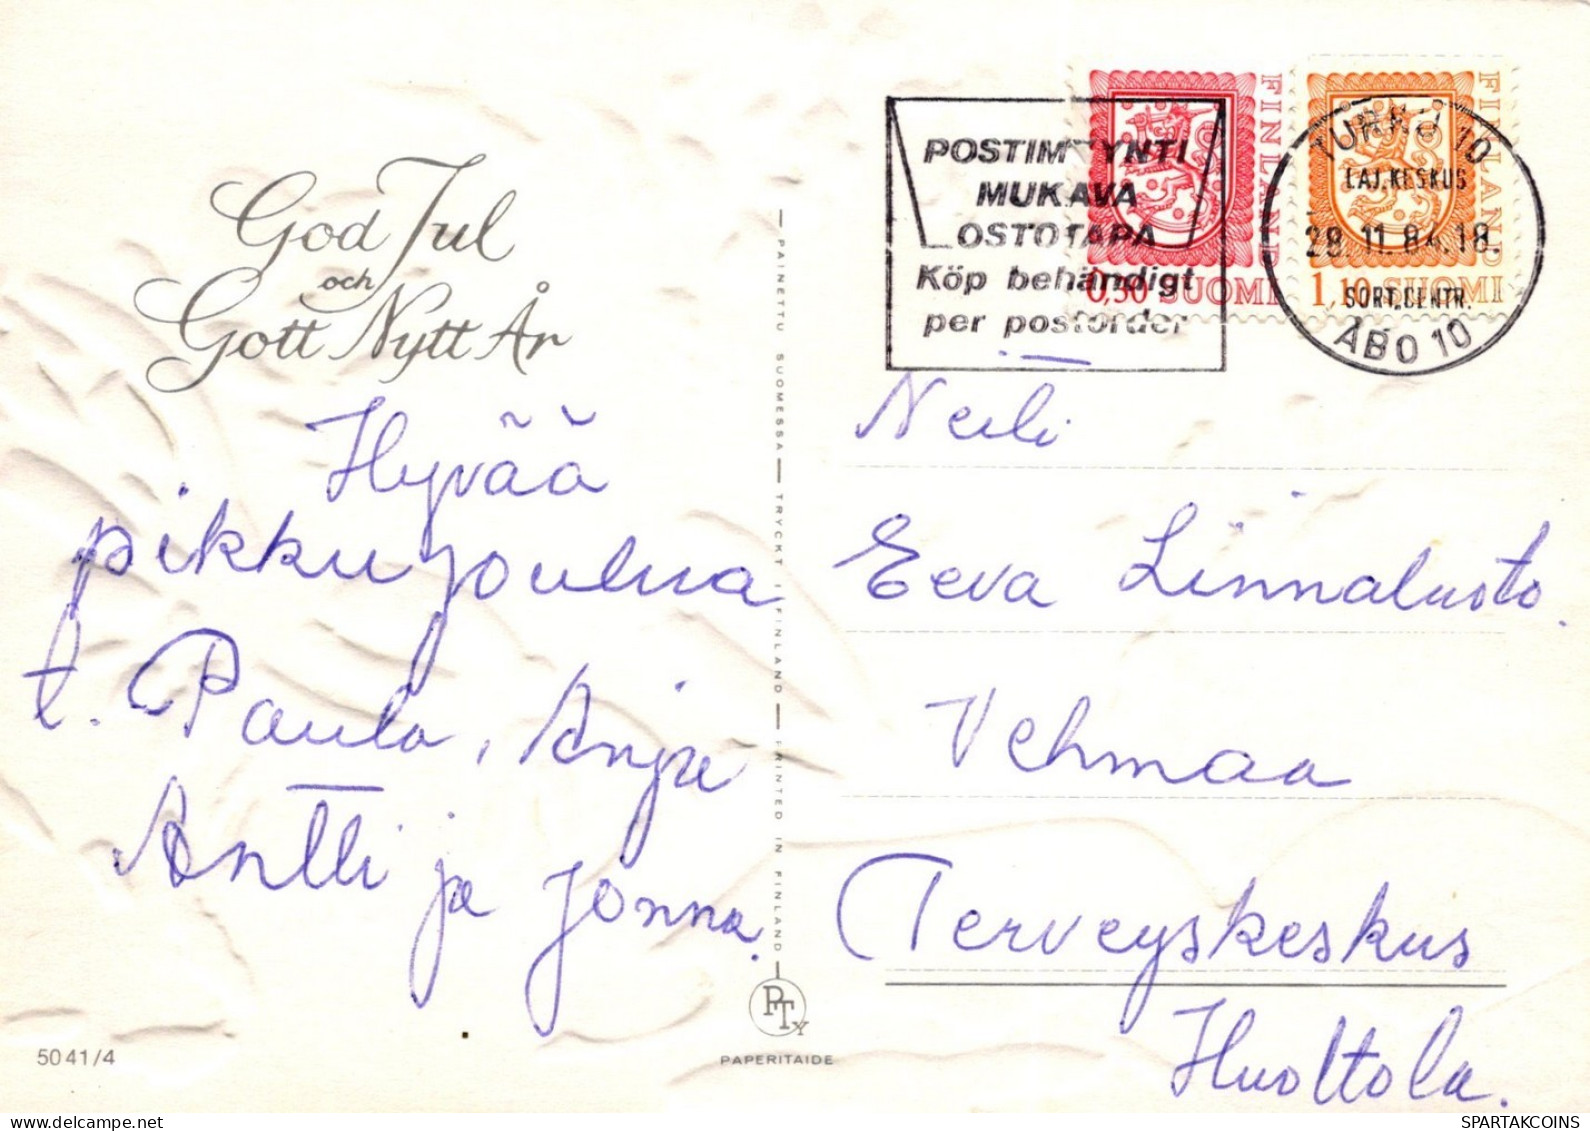 God Jul
och
Gott Nytt År
Hyvää
pikkujoulua
t. Paula, Anja
Antti ja Jonna.
5041/4
PAINETTU SUOMESSA — TRYCKT I FINLAND — PRINTED IN FINLAND
PTY
PAPERITAIDE
POSTIMYYNTI
MUKAVA
OSTOTAPA
Köp behändigt
per postorder
FINLAND
0,50 SUOMI
FINLAND
1,10 SUOMI
TURKU 10
LAJ.KESKUS
28.11.84.18.
SORT.CENTR.
ÅBO 10
Neili
Eeva Linnaluoto.
Vehmaa
Terveyskeskus
Huoltola.
SPARTAKCOINS.COM